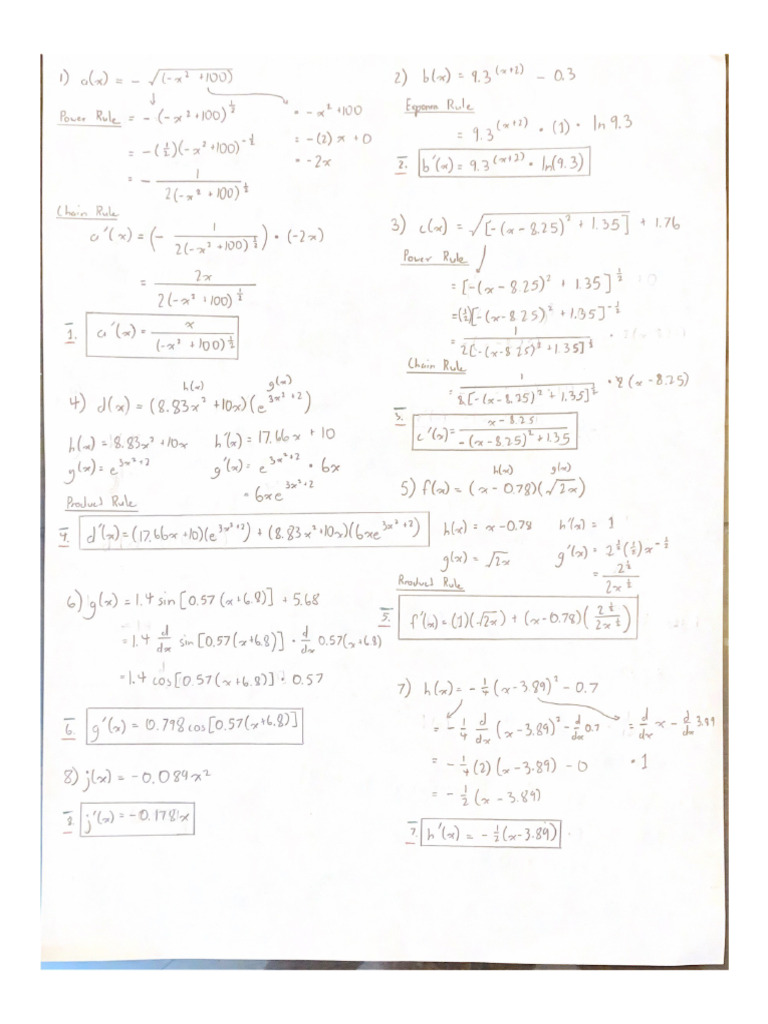 1) a(x) = - √(-x² +100)
Power Rule = -(-x²+100)^½ = -x²+100
= -(½)(-x²+100)^-½ = -(2)x + 0
= - 1/2(-x² + 100)^½ = -2x
Chain Rule
a'(x) = (- 1/2(-x² +100)^½) • (-2x)
= 2x/2(-x² + 100)^½
1. a'(x) = x/(-x² +100)^½
2) b(x) = 9.3^(x+2) - 0.3
Rule
= 9.3^(x+2) • (1) • ln 9.3
2. b'(x) = 9.3^(x+2) • ln(9.3)
3) c(x) = √[-(x - 8.25)² + 1.35] + 1.76
Power Rule
= [-(x - 8.25)² + 1.35]^½
=(½)[-(x - 8.25)² + 1.35]^-½
= 1/2[-(x - 8.25)² + 1.35]^½
Chain Rule
= 1/2[-(x - 8.25)² + 1.35]^½ • 2(x - 8.25)
3. c'(x) = x - 8.25/-(x - 8.25)² + 1.35
h(x) g(x)
4) d(x) = (8.83x² +10x)(e^3x²+2)
h(x) = 8.83x² +10x h'(x) = 17.66x + 10
g(x) = e^3x²+2 g'(x) = e^3x²+2 • 6x
= 6xe^3x²+2
Product Rule
4. d'(x) = (17.66x +10)(e^3x²+2) + (8.83x²+10x)(6xe^3x²+2)
h(x) g(x)
5) f(x) = (x - 0.78)(√2x)
h(x) = x - 0.78 h'(x) = 1
g(x) = √2x g'(x) = 2^½(½)x^-½
= 2^½/2x^½
Product Rule
5. f'(x) = (1)(√2x) + (x - 0.78)(2^½/2x^½)
6) g(x) = 1.4 sin[0.57(x+6.8)] + 5.68
= 1.4 d/dx sin[0.57(x+6.8)] • d/dx 0.57(x+6.8)
= 1.4 cos[0.57(x+6.8)] • 0.57
6. g'(x) = 0.798 cos[0.57(x+6.8)]
7) h(x) = -¼(x - 3.89)² - 0.7
= -¼ d/dx (x - 3.89)² - d/dx 0.7 = d/dx x - d/dx 3.89
= -¼(2)(x - 3.89) - 0 • 1
= -½(x - 3.89)
7. h'(x) = -½(x - 3.89)
8) j(x) = -0.089x²
8. j'(x) = -0.178x